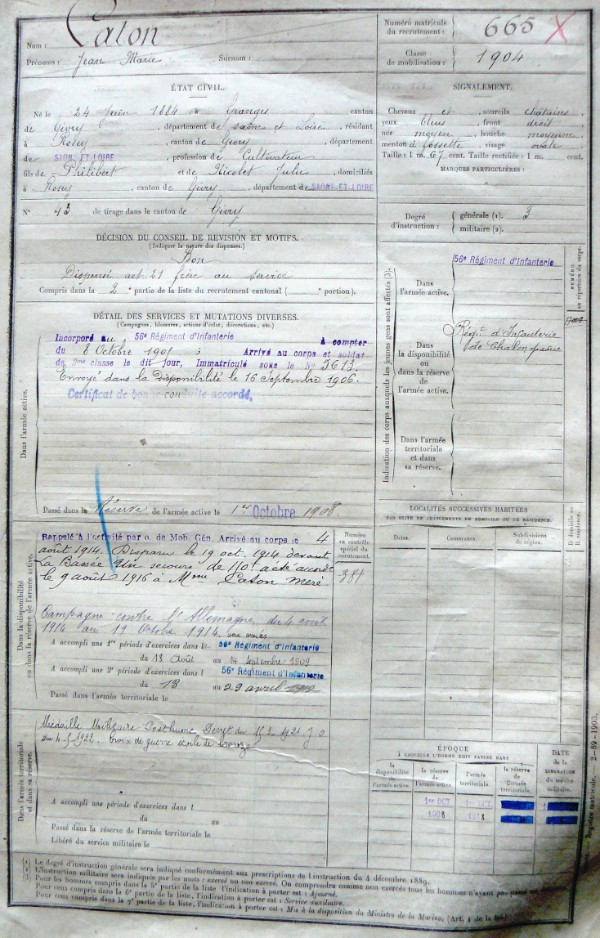 Nom : Caton
Prénoms : Jean Marie Surnom :
Numéro matricule du recrutement : 665 X
Classe de mobilisation : 1904
ÉTAT CIVIL.
Né le 24 1884 à Granges canton
de Givry, département de Saône et Loire, résidant
à Rosey, canton de Givry, département
de SAONE-ET-LOIRE, profession de Cultivateur
fils de Philibert et de Nicolot Julie, domiciliés
à Rosey, canton de Givry, département de SAONE-ET-LOIRE
N° 43 de tirage dans le canton de Givry
SIGNALEMENT.
Cheveux et sourcils châtains
yeux bleus, front droit
nez moyen, bouche moyenne
menton à fossette, visage ovale
Taille : 1 m. 67 cent. Taille rectifiée : 1 m. cent.
MARQUES PARTICULIÈRES :
Degré d'instruction : générale (1). 3
militaire (2).
DÉCISION DU CONSEIL DE REVISION ET MOTIFS.
(Indiquer la nature des dispenses.)
Bon
Dispensé art. 21 frère au service
Compris dans la 2e partie de la liste du recrutement cantonal ( portion).
DÉTAIL DES SERVICES ET MUTATIONS DIVERSES.
(Campagnes, blessures, actions d'éclat, décorations, etc.)
Dans l'armée active.
Incorporé au 56e Régiment d'Infanterie à compter
du 8 Octobre 1905 Arrivé au corps et soldat
de 2me classe le dit jour, Immatriculé sous le N° 3613.
Envoyé dans la Disponibilité le 16 Septembre 1906.
Certificat de bonne conduite accordé,
Passé dans la Réserve de l'armée active le 1er Octobre 1908.
Indication des corps auxquels les jeunes gens sont affectés (3).
Dans l'armée active.
56e Régiment d'Infanterie
Dans la disponibilité ou dans la réserve de l'armée active.
Régt d'Infanterie de Chalon s/Saône
Dans l'armée territoriale et dans sa réserve.
NUMÉRO au répertoire du corps.
Dans la disponibilité ou dans la réserve de l'armée active.
Rappelé à l'activité par o. de Mob. Gén. Arrivé au corps le 4
août 1914. Disparu le 19 oct. 1914 devant
La Bassée. Un secours de 150f a été accordé
le 9 août 1916 à Mme Caton mère
Numéro au contrôle spécial du recrutement.
384
Campagne contre l'Allemagne du 4 août
1914 au 19 Octobre 1914.
A accompli une 1re période d'exercices dans le 56e Régiment d'Infanterie
du 18 Août au Septembre 1909
A accompli une 2e période d'exercices dans le 56e Régiment d'Infanterie
du 13 au 29 avril
Passé dans l'armée territoriale le
LOCALITÉS SUCCESSIVES HABITÉES
PAR SUITE DE CHANGEMENTS DE DOMICILE OU DE RÉSIDENCE.
Dates. Communes. Subdivisions de région. D. domicile ou R. résidence.
Dans l'armée territoriale et dans sa réserve.
Médaille Militaire Posthume Décret du J.O
du 1922. Croix de guerre étoile de bronze
A accompli une période d'exercices dans l
du au
Passé dans la réserve de l'armée territoriale le
Libéré du service militaire le
ÉPOQUE
À LAQUELLE L'HOMME DOIT PASSER DANS
la disponibilité de l'armée active. la réserve de l'armée active. l'armée territoriale. la réserve de l'armée territoriale. DATE de la LIBÉRATION du service militaire.
1er OCT 1908 OCT
Registre matricule. — 2-89-1903.
(1) Le degré d'instruction générale sera indiqué conformément aux prescriptions de l'instruction du 4 décembre 1889.
L'instruction militaire sera indiquée par les mots : exercé ou non exercé. On comprendra comme non exercés tous les hommes n'ayant pas passé
Pour les hommes compris dans la 5e partie de la liste l'indication à porter est : Ajourné.
Pour ceux compris dans la 6e partie de la liste, l'indication à porter est : Service auxiliaire.
Pour ceux compris dans la 7e partie de la liste, l'indication à porter est : Mis à la disposition du Ministre de la Marine, (Art. 4 de la loi).